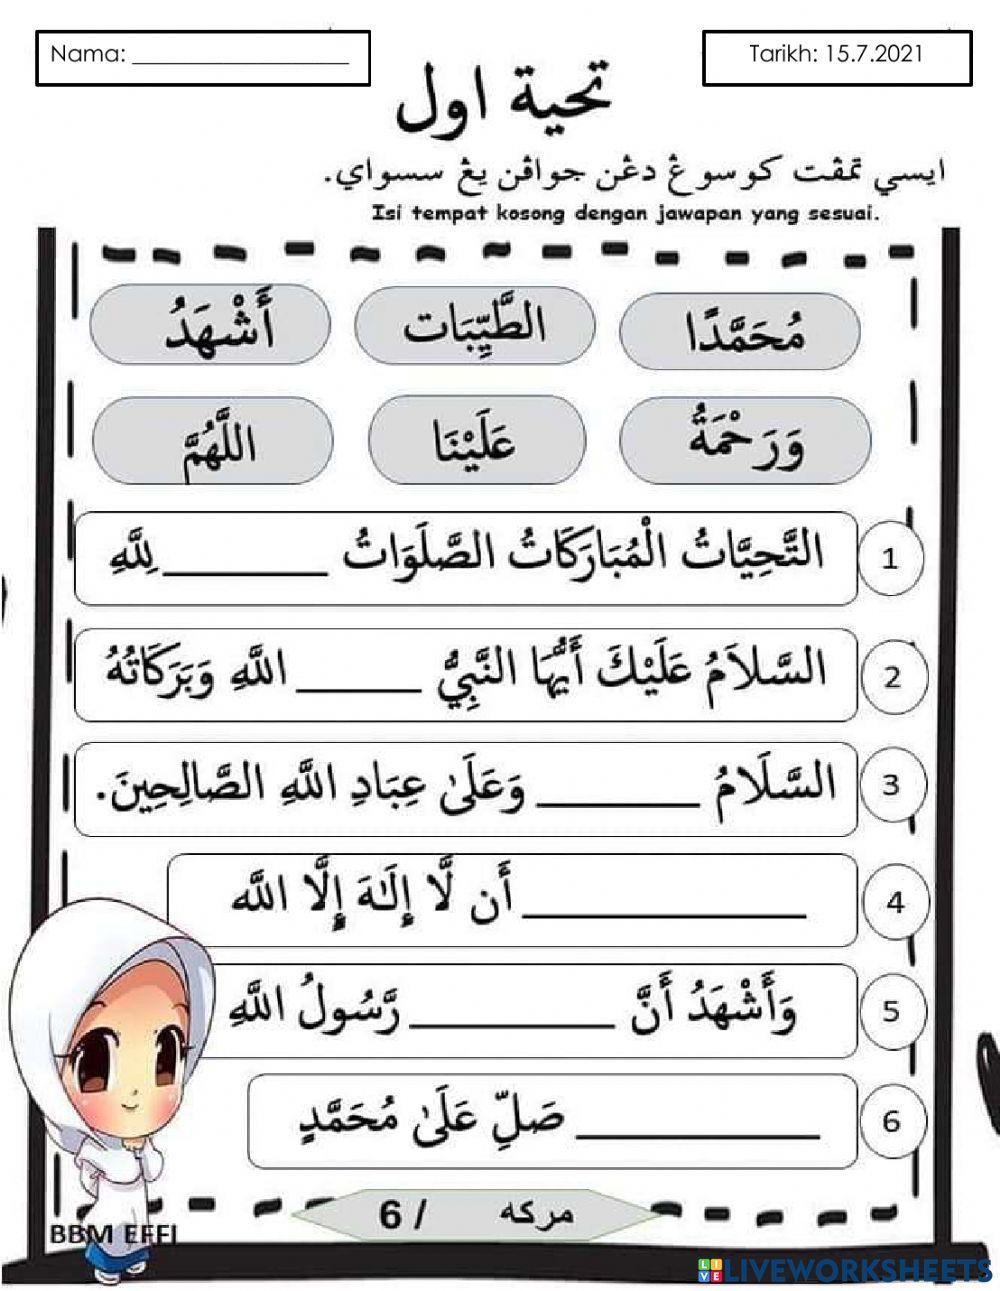 Nama: __________________
Tarikh: 15.7.2021
تحية اول
ايسي تمڤت كوسوڠ دڠن جواڤن يڠ سسواي.
Isi tempat kosong dengan jawapan yang sesuai.
مُحَمَّدًا الطَّيِّبَات أَشْهَدُ
وَرَحْمَةُ عَلَيْنَا اللَّهُمَّ
1 التَّحِيَّاتُ الْمُبَارَكَاتُ الصَّلَوَاتُ ________ لِلَّهِ
2 السَّلاَمُ عَلَيْكَ أَيُّهَا النَّبِيُّ ______ اللَّهِ وَبَرَكَاتُهُ
3 السَّلَامُ ________ وَعَلَىٰ عِبَادِ اللَّهِ الصَّالِحِينَ.
4 ______________ أَن لَّا إِلَـٰهَ إِلَّا اللَّه
5 وَأَشْهَدُ أَنَّ __________ رَّسُولُ اللَّهِ
6 ____________ صَلِّ عَلَىٰ مُحَمَّدٍ
مركه / 6
BBM EFFI
LIVEWORKSHEETS